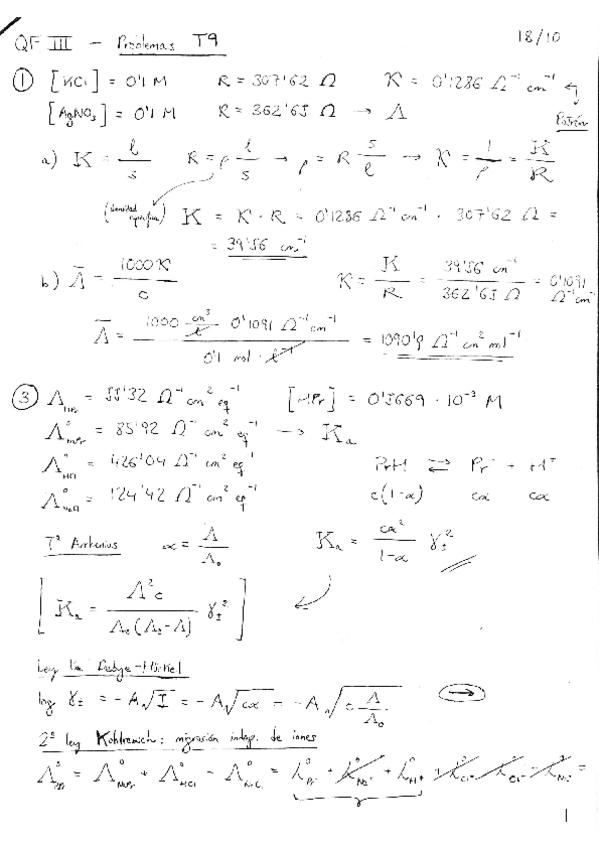 QF III - Problemas T9 18/10
① [KCl] = 0'1 M R = 307'62 Ω κ = 0'1286 Ω⁻¹ cm⁻¹
[AgNO₃] = 0'1 M R = 362'65 Ω → Λ Patrón
a) K = l/s R = ρ l/s → ρ = R s/l → κ = 1/ρ = K/R
K = κ · R = 0'1286 Ω⁻¹ cm⁻¹ · 307'62 Ω =
= 39'56 cm⁻¹
b) Λ̄ = 1000 κ/c κ = K/R = 39'56 cm⁻¹/362'65 Ω = 0'1091 Ω⁻¹ cm⁻¹
Λ̄ = 1000 cm³/l 0'1091 Ω⁻¹ cm⁻¹/0'1 mol · l⁻¹ = 1090'9 Ω⁻¹ cm² mol⁻¹
③ Λ_HPr = 55'32 Ω⁻¹ cm² eq⁻¹ [HPr] = 0'5669 · 10⁻³ M
Λ°_NaPr = 85'92 Ω⁻¹ cm² eq⁻¹ → Kₐ
Λ°_HCl = 426'04 Ω⁻¹ cm² eq⁻¹ PrH ⇄ Pr⁻ + H⁺
Λ°_NaCl = 124'42 Ω⁻¹ cm² eq⁻¹ c(1-α) cα cα
Tª Arrhenius α = Λ/Λ₀ Kₐ = cα²/1-α γ±²
[Kₐ = Λ²c/Λ₀(Λ₀-Λ) γ±²]
Ley lím Debye-Hückel
log γ± = -A√I = -A√cα = -A√c Λ/Λ₀ →
2ª ley Kohlrausch: migración indep. de iones
Λ°_HPr = Λ°_NaPr + Λ°_HCl - Λ°_NaCl = λ°_Pr⁻ + λ°_Na⁺ + λ°_H⁺ + λ°_Cl⁻ - λ°_Cl⁻ - λ°_Na⁺ =
1